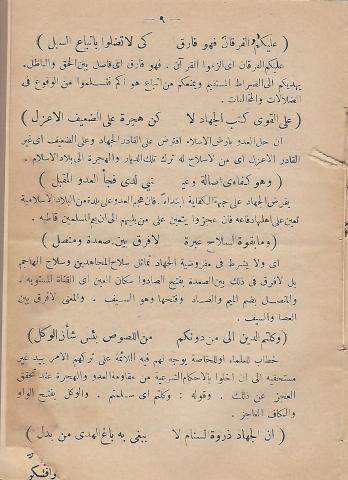 — ٩ —
( عليكم الفرقان فهو فارق كى لا تضلوا باتباع السبل )
عليكم الفرقان اى الزموا القرآن . فهو فارق اى فاصل بين الحق والباطل.
يهديكم الى الصراط المستقيم ويمنعكم من اتباع هو اكم فتسلموا من الوقوع فى
الضلالات والمخالفات .
( على القوى كتب الجهاد لا كن هجرة على الضعيف الاعزل )
ان حل العدو بارض الاسلام افترض على القادر الجهاد وعلى الضعيف اى غير
القادر الاعزل اى من لاسلاح له ترك تلك الديار والهجرة الى بلاد الاسلام .
( وهو كفاءى اصالة وعيـ نى لدى فجأ العدو المقبل )
يفرض الجهاد على جهة الكفاية ابتداء فان هجم العدو على بلدة من البلاد الاسلامية
تعين على اهلها دفاعه فان عجزوا يتعين على من يليهم الى ان يعم المسلمين قاطبة .
( وما بقوة السلاح عبرة لا فرق بين صعدة ومنصل )
اى ولا يشترط فى مفروضية الجهاد تماثل سلاح المجاهدين وسلاح المهاجم
بل لافرق فى ذلك بين الصعدة بفتح الصاد وسكان العين اى القناة المستويه .
والمنصل بضم الميم والصاد وفتحها وهو السيف . والمعنى لا فرق بين
العصا والسيف .
( وكلتم الدين الى من دونكم من اللصوص بئس شأن الوكل )
خطاب للعلماء او للخاصة يوجه لهم فيه اللائمة على تركهم الامر بيد غير
مستحقيه الى ان اخلوا بالاحكام الشرعية من مقاومة العدو والهجرة عند تحقق
العجز عن ذلك . وقوله : وكلتم اى سلمتم . والوكل بفتح الواو
والكاف العاجز .
( ان الجهاد ذروة السنام لا يبغى به باغ الهدى من بدل )